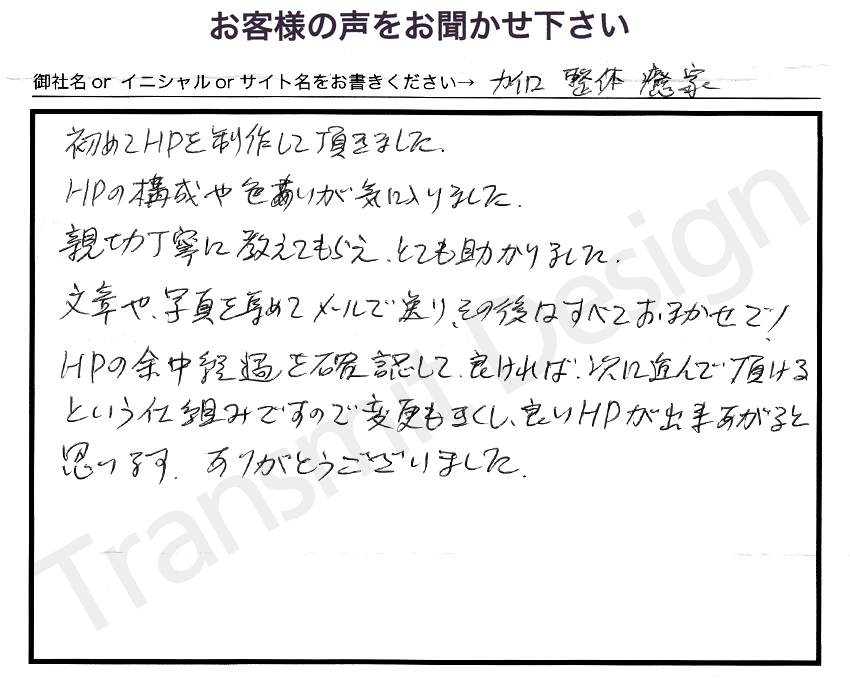 お客様の声をお聞かせ下さい
御社名 or イニシャル or サイト名をお書きください→ カイロ 整体 癒家
初めてHPを制作して頂きました.
HPの構成や色あいが気に入りました.
親切丁寧に教えてもらえ、とても助かりました.
文章や、写真を集めてメールで送り、その後はすべておまかせで!
HPの余中経過を確認して、良ければ、次に進んで頂ける
という仕組みですので変更もすくし、良いHPが出来あがると
思います. ありがとうございました.
Transmit Design